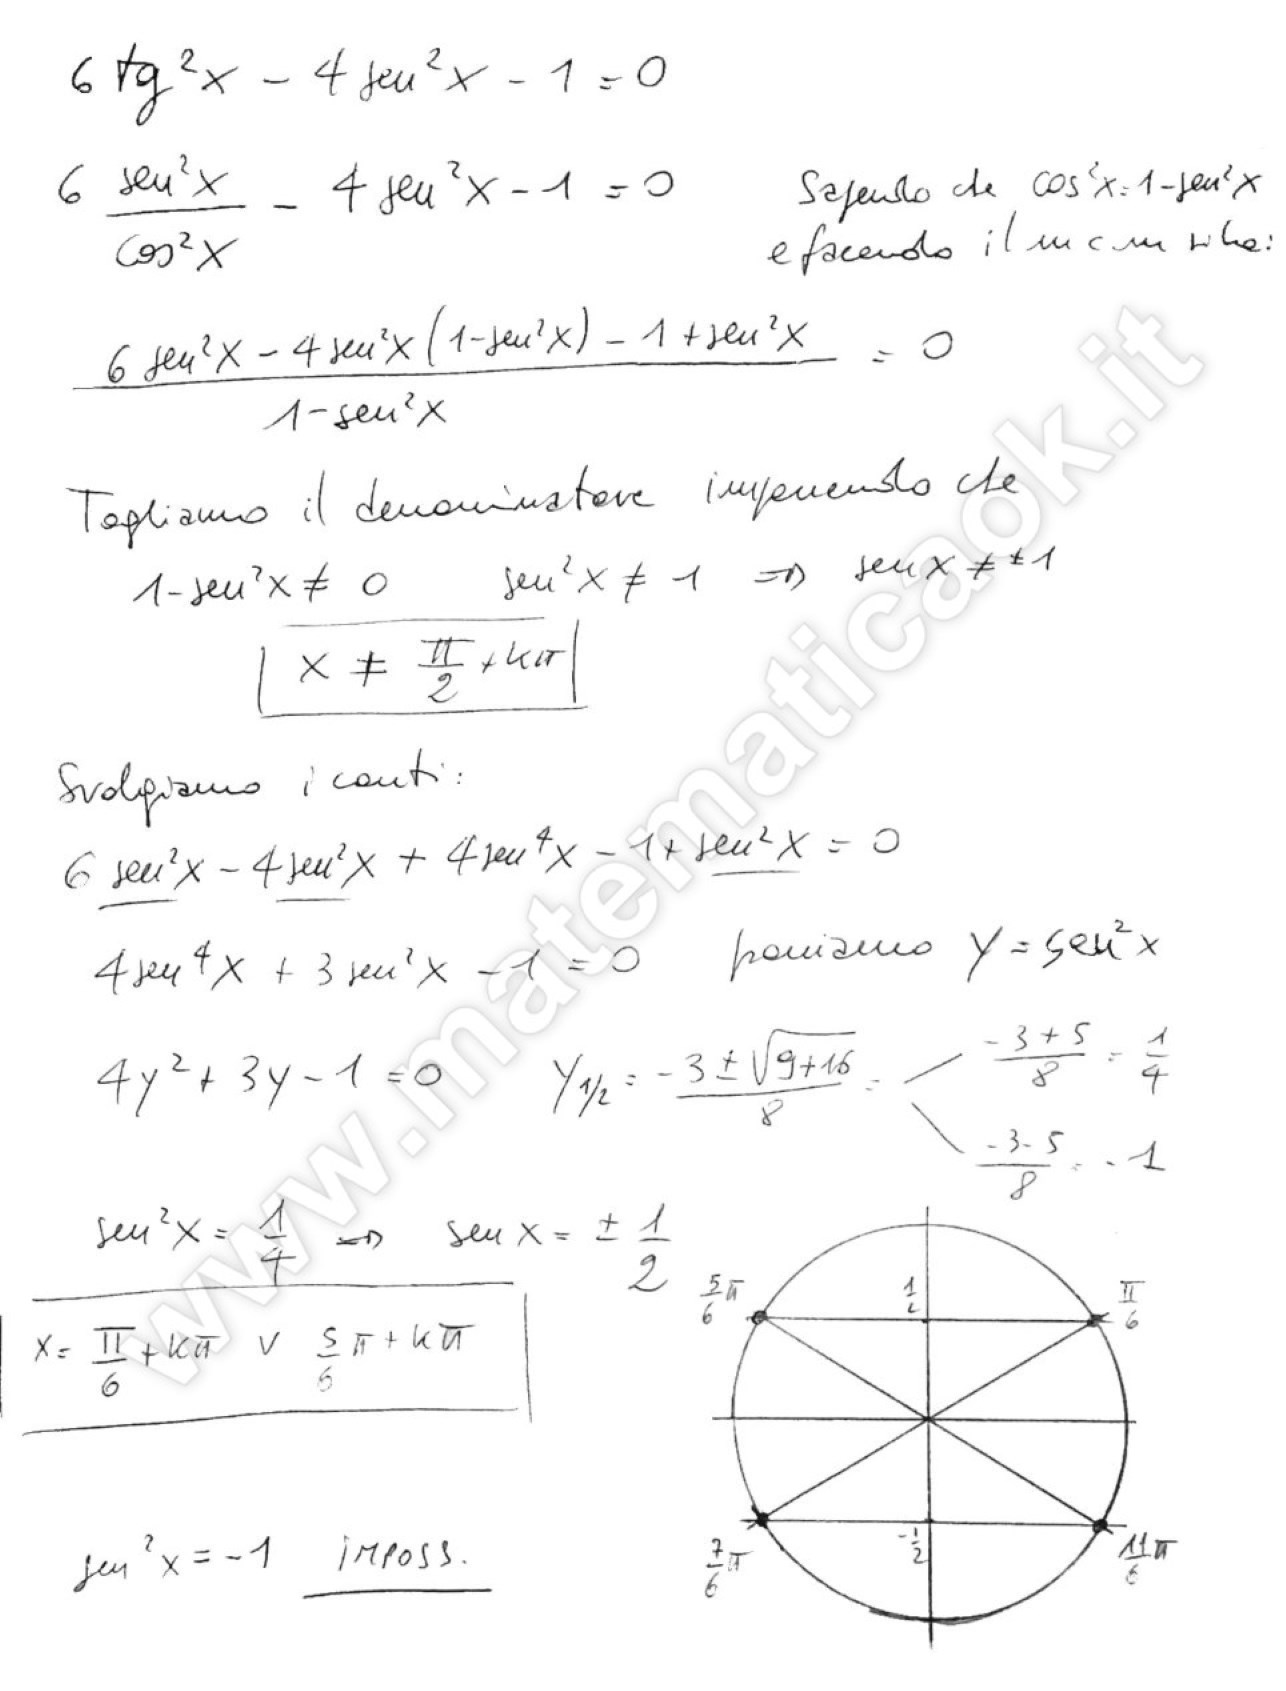 6 tg²x - 4 sen²x - 1 = 0
6 sen²x/cos²x - 4 sen²x - 1 = 0
Sapendo che cos²x = 1 - sen²x
e facendo il mcm si ha:
(6 sen²x - 4 sen²x (1 - sen²x) - 1 + sen²x)/(1 - sen²x) = 0
Togliamo il denominatore imponendo che
1 - sen²x ≠ 0 sen²x ≠ 1 ⇒ sen x ≠ ±1
x ≠ π/2 + kπ
Svolgiamo i conti:
6 sen²x - 4 sen²x + 4 sen⁴x - 1 + sen²x = 0
4 sen⁴x + 3 sen²x - 1 = 0 poniamo y = sen²x
4y² + 3y - 1 = 0 y1/2 = (-3 ± √(9+16))/8 =
(-3+5)/8 = 1/4
(-3-5)/8 = -1
sen²x = 1/4 ⇒ sen x = ± 1/2
x = π/6 + kπ ∨ 5/6 π + kπ
5/6 π
1/2
π/6
7/6 π
-1/2
11/6 π
sen²x = -1 IMPOSS.
www.matematicaok.it